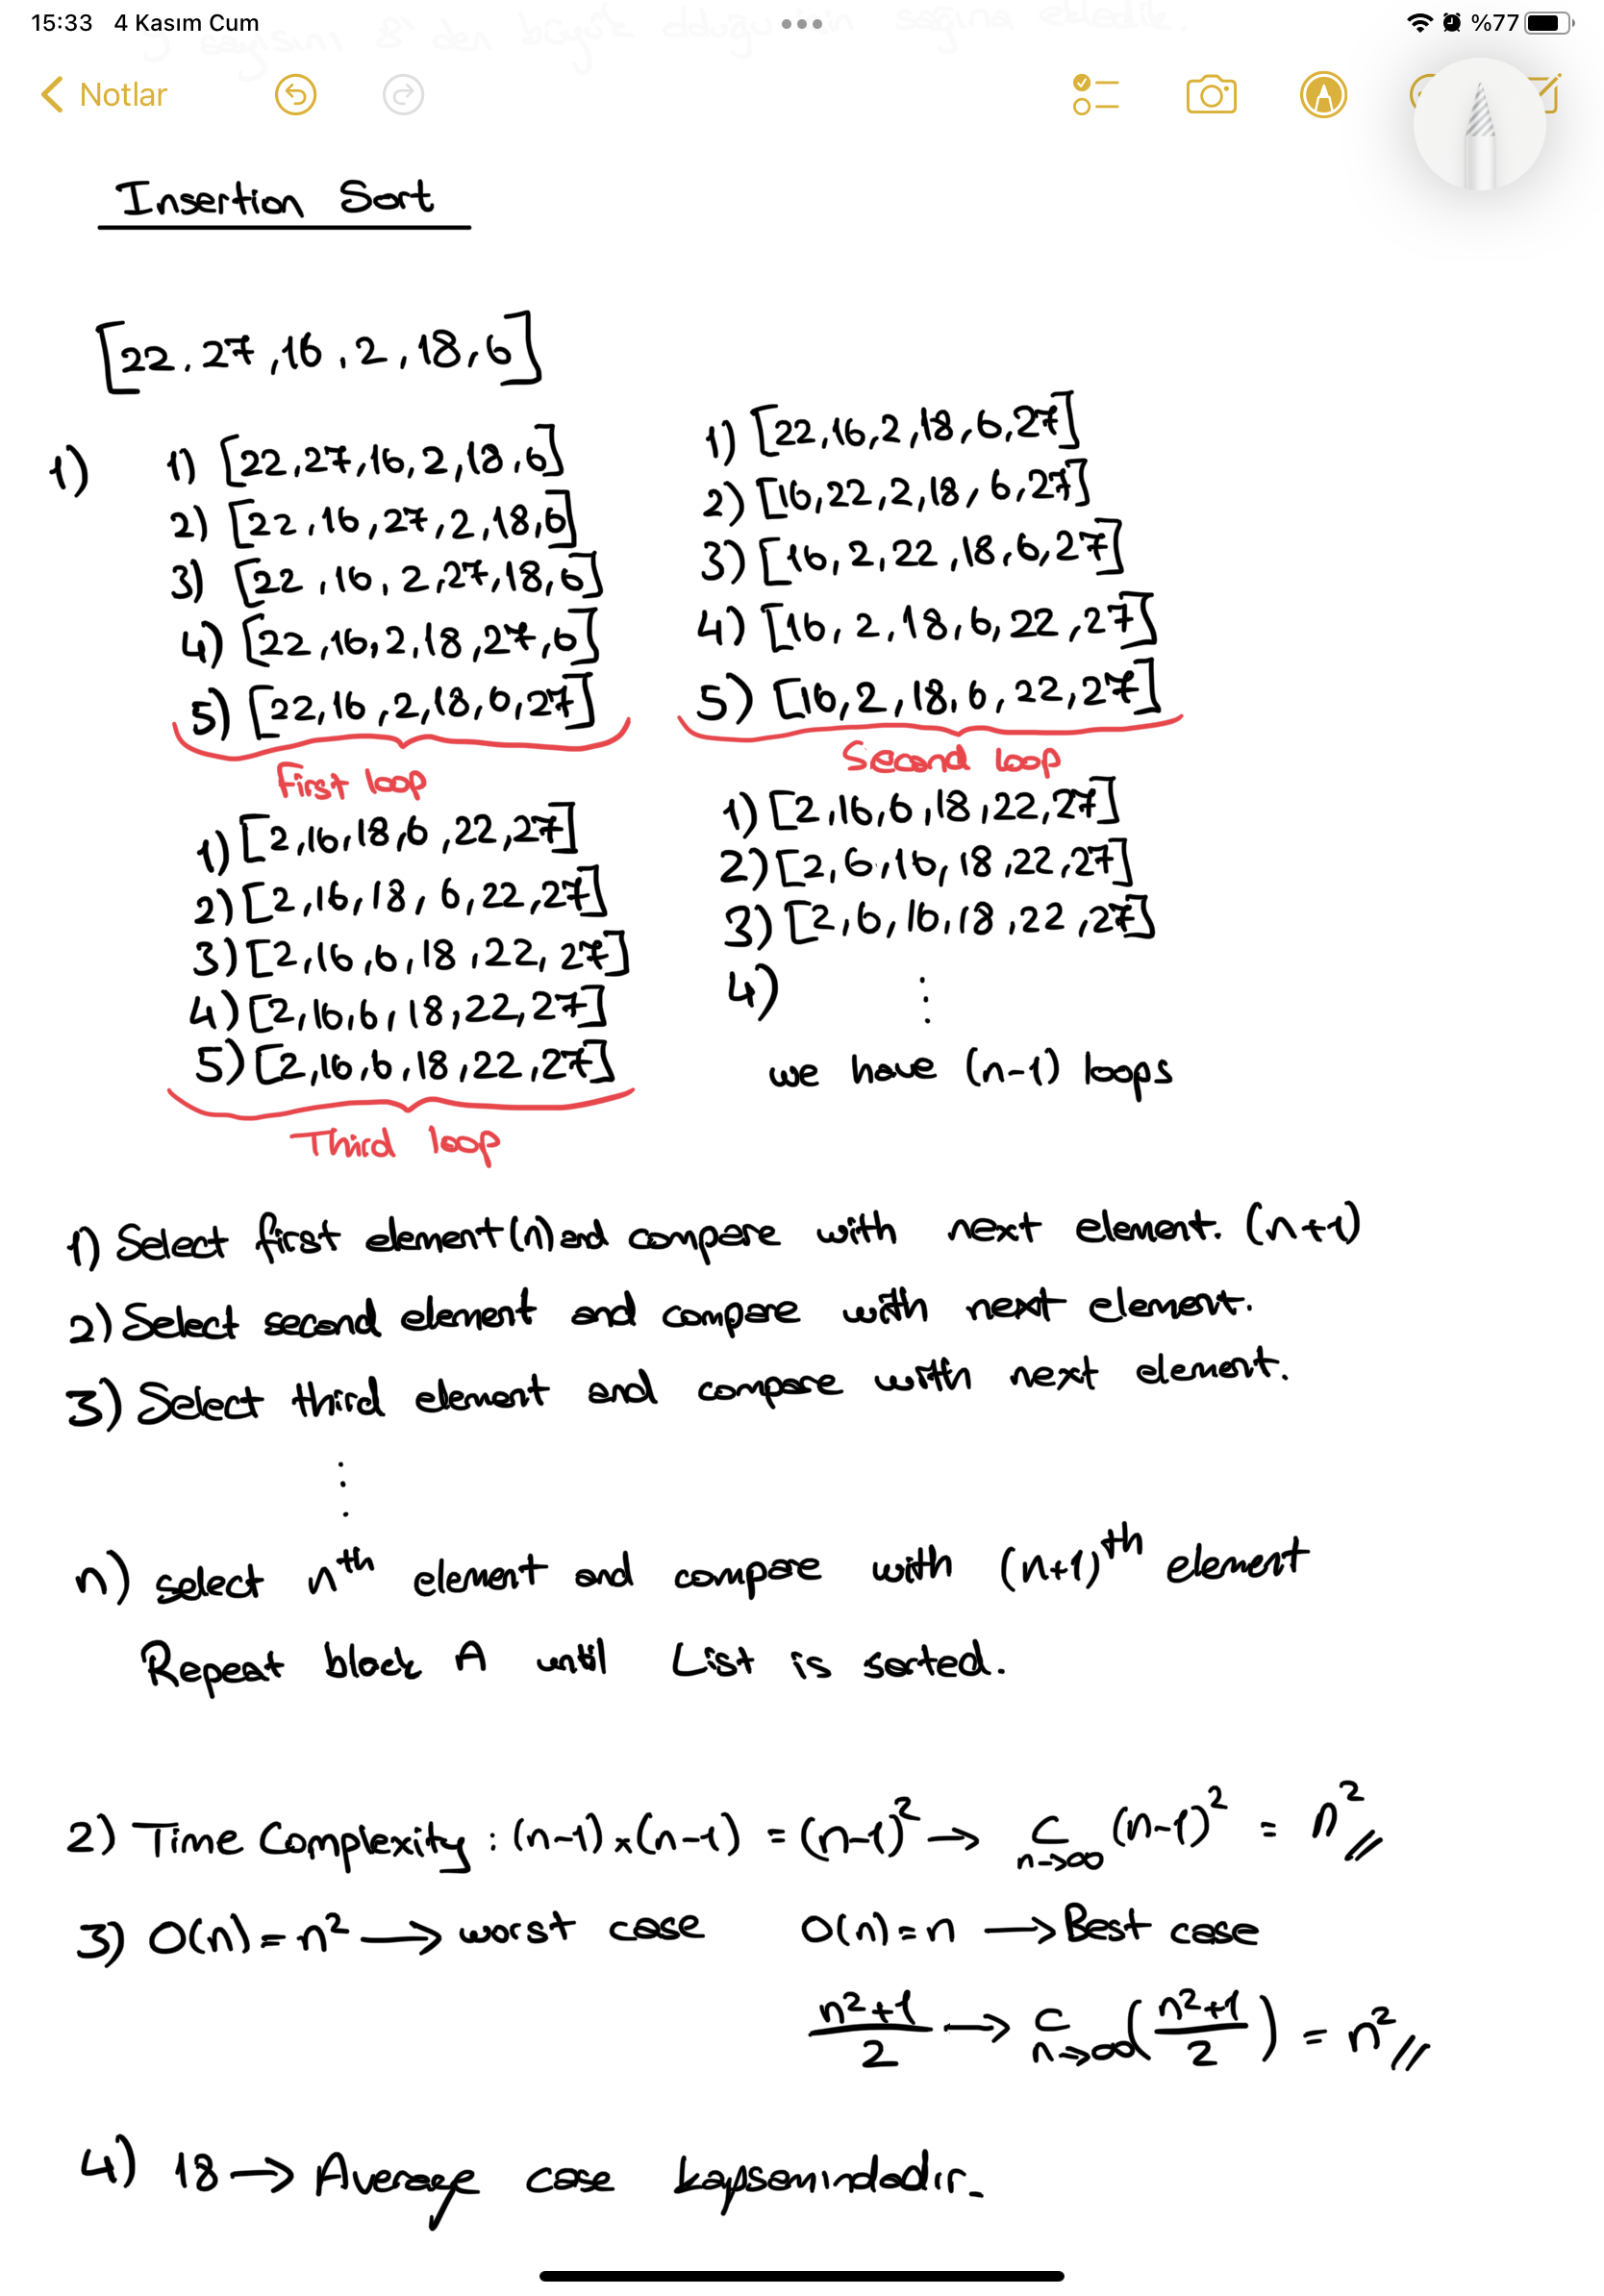 15:33 4 Kasım Cum
%77
sayısını 8'den büyük olduğu için sağına ekledik.
Notlar
Insertion Sort
[22, 27, 16, 2, 18, 6]
1)
1) [22, 27, 16, 2, 18, 6]
2) [22, 16, 27, 2, 18, 6]
3) [22, 16, 2, 27, 18, 6]
4) [22, 16, 2, 18, 27, 6]
5) [22, 16, 2, 18, 6, 27]
First loop
1) [22, 16, 2, 18, 6, 27]
2) [16, 22, 2, 18, 6, 27]
3) [16, 2, 22, 18, 6, 27]
4) [16, 2, 18, 6, 22, 27]
5) [16, 2, 18, 6, 22, 27]
Second loop
1) [2, 16, 18, 6, 22, 27]
2) [2, 16, 18, 6, 22, 27]
3) [2, 16, 6, 18, 22, 27]
4) [2, 16, 6, 18, 22, 27]
5) [2, 16, 6, 18, 22, 27]
Third loop
1) [2, 16, 6, 18, 22, 27]
2) [2, 6, 16, 18, 22, 27]
3) [2, 6, 16, 18, 22, 27]
4) ⋮
we have (n-1) loops
1) Select first element (n) and compare with next element. (n+1)
2) Select second element and compare with next element.
3) Select third element and compare with next element.
⋮
n) select nth element and compare with (n+1)th element
Repeat block A until List is sorted.
2) Time Complexity : (n-1) x (n-1) = (n-1)² → C n→∞ (n-1)² = n² //
3) O(n) = n² → worst case O(n) = n → Best case
n²+1 / 2 → C n→∞ (n²+1 / 2) = n² //
4) 18 → Average case kapsamındadır.